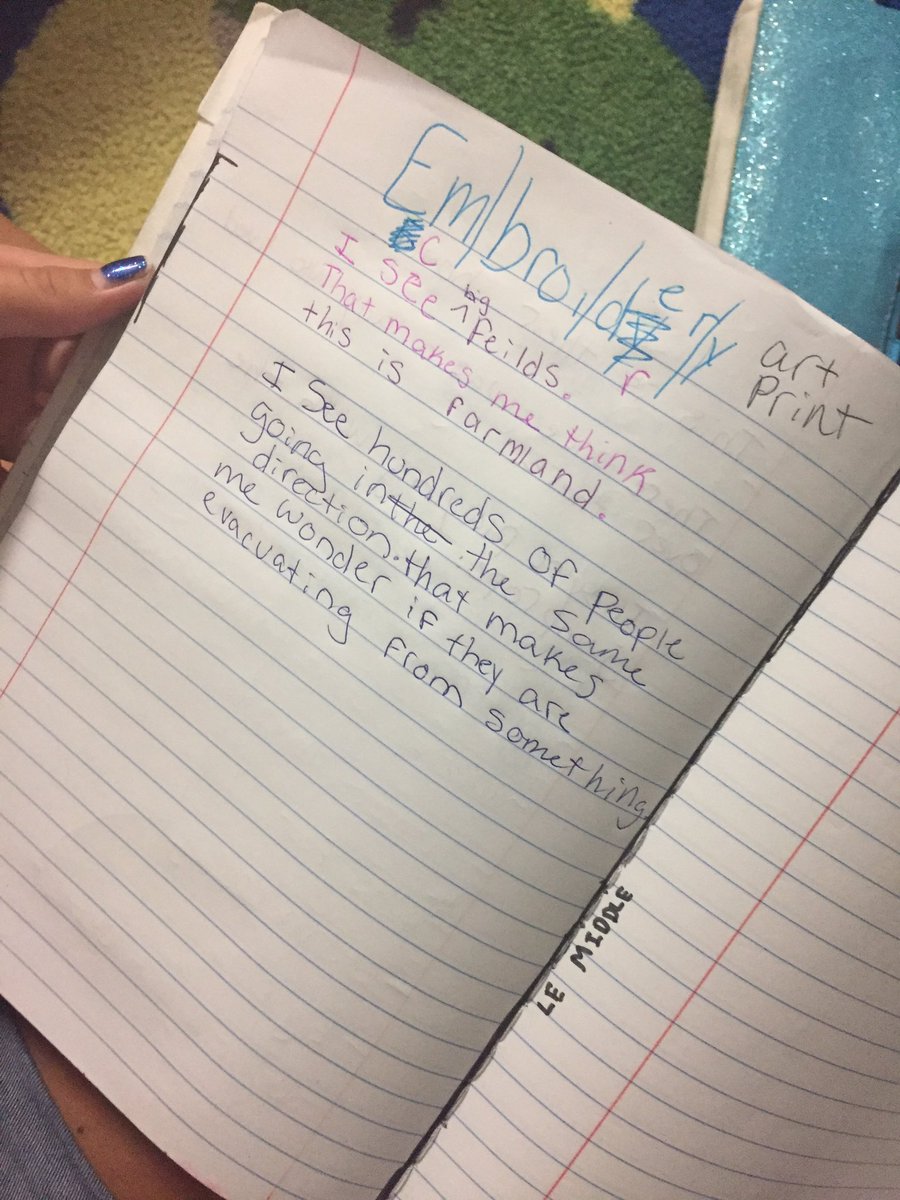 Em/bro/i/der/y
C
r
art
print
I see big feilds.
That makes me think
this is farmland.
I see hundreds of people
going in the the same
direction. that makes
me wonder if they are
evacuating from something
LE MIDDLE